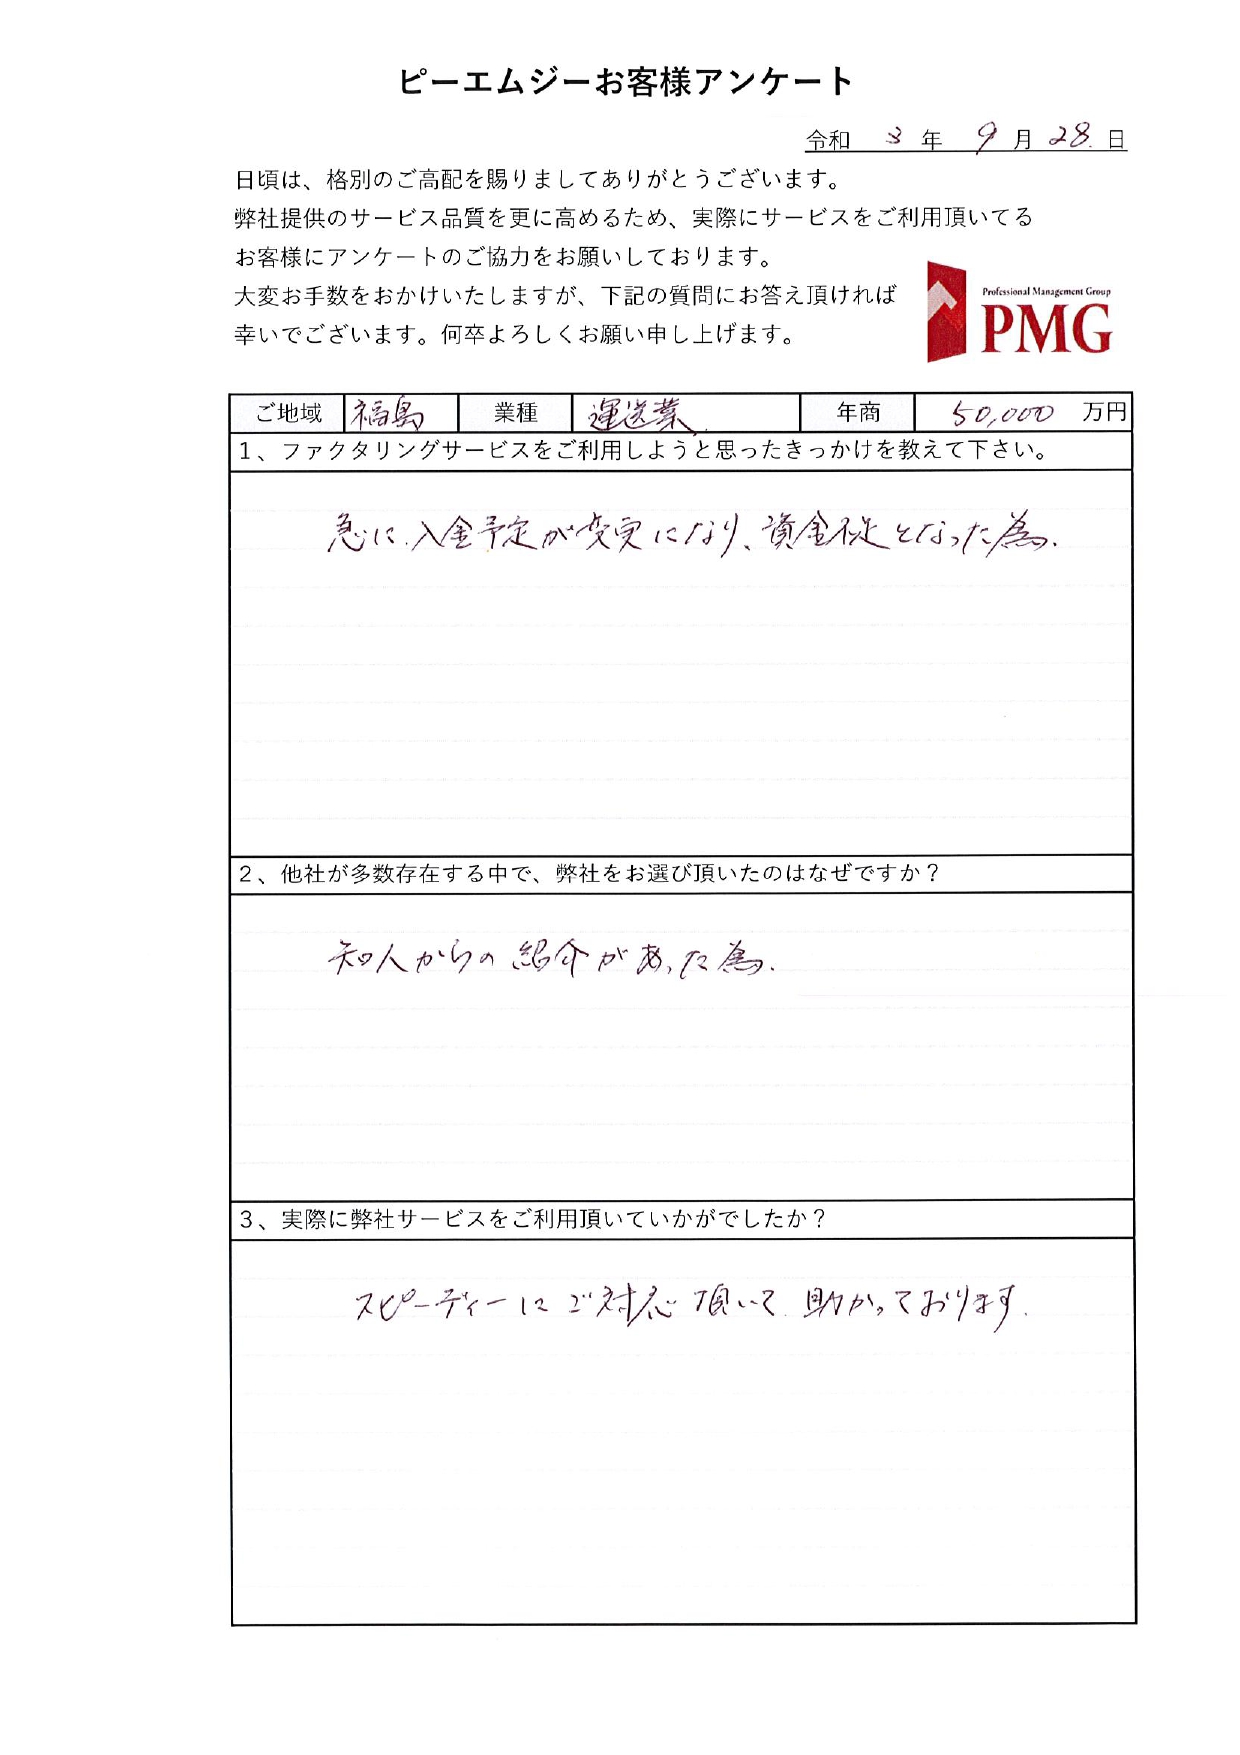 ピーエムジーお客様アンケート
令和 3 年 9 月 28 日
日頃は、格別のご高配を賜りましてありがとうございます。
弊社提供のサービス品質を更に高めるため、実際にサービスをご利用頂いてる
お客様にアンケートのご協力をお願いしております。
大変お手数をおかけいたしますが、下記の質問にお答え頂ければ
幸いでございます。何卒よろしくお願い申し上げます。
Professional Management Group
PMG
ご地域 福島 業種 運送業 年商 50,000 万円
1、ファクタリングサービスをご利用しようと思ったきっかけを教えて下さい。
急に入金予定が変更になり、資金不足となった為.
2、他社が多数存在する中で、弊社をお選び頂いたのはなぜですか？
知人からの紹介があった為.
3、実際に弊社サービスをご利用頂いていかがでしたか？
スピーディーにご対応頂いて助かっております.